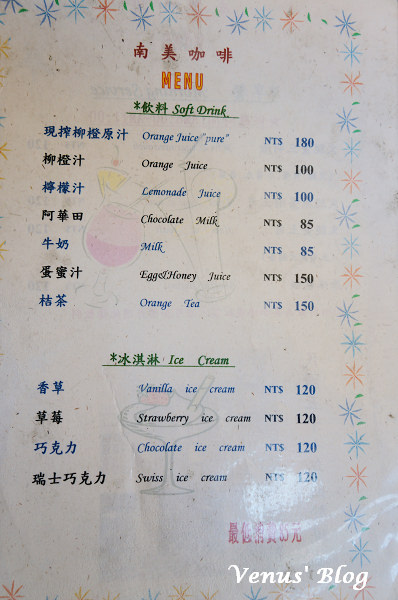 南美咖啡
MENU
*飲料 Soft Drink
現搾柳橙原汁 Orange Juice"pure" NT$ 180
柳橙汁 Orange Juice NT$ 100
檸檬汁 Lemonade Juice NT$ 100
阿華田 Chocolate Milk NT$ 85
牛奶 Milk NT$ 85
蛋蜜汁 Egg&Honey Juice NT$ 150
桔茶 Orange Tea NT$ 150
*冰淇淋 Ice Cream
香草 Vanilla ice cream NT$ 120
草莓 Strawberry ice cream NT$ 120
巧克力 Chocolate ice cream NT$ 120
瑞士巧克力 Swiss ice cream NT$ 120
最低消費85元
Venus' Blog